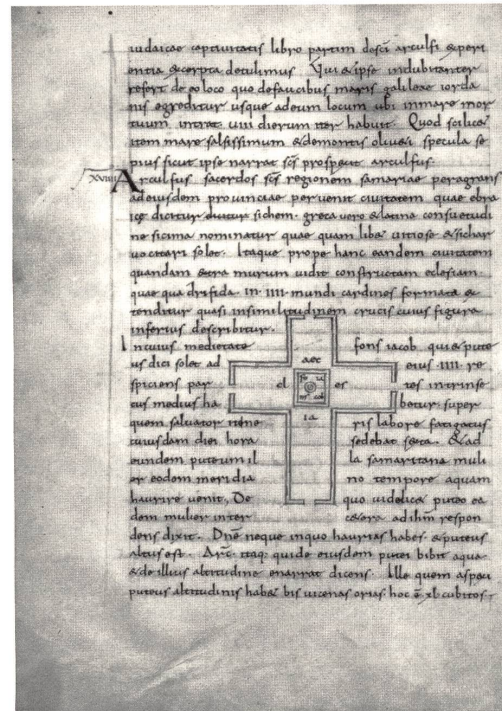 iudaicae captiuitatis libro partim dosci arculfi experi
entia excerpta detulimus Qui & ipse indubitanter
refert de eo loco quo defaucibus maris galileae iorda
nis egreditur usque adeum locum ubi inmare mor
tuum intrat uiii dierum iter habuit. Quod scilic&
item mare salsissimum & demontis oliueti specula se
pius sicut ipse narrat scs prospexit arculfus.
XVIIII Arculfus sacerdos scs regionem samariae peragrans
adeiusdem prouinciae peruenit ciuitatem quae ebra
ice dicitur sichem. greca uero & latina consuetudi
ne sicima nominatur quae quam lib& uitiose & sichar
uocitari solet. Itaque prope hanc eandem ciuitatem
quandam extra murum uidit constructam eclesiam.
quae qua drifida. in. iiii. mundi cardines formata ex
tenditur quasi insimilitudinem crucis cuius figura
inferius describitur.
In cuius medietate fons iacob. qui & pute
us dici sol& ad eius. iiii. re
spiciens par tes intrinse
cus medius ha betur. super
quem saluator itine ris labore fatigatus
cuiusdam diei hora sedebat sexta. & ad
eundem puteum il la samaritana muli
er eodem meridia no tempore aquam
haurire uenit. De quo uidelic& puteo ea
dem mulier inter cetera ad ihm respon
dens dixit. Dne neque inquo haurias habes & puteus
altus est. Arc. itaq. qui de eiusdem putei bibit aqua
& de illius altitudine enarrat dicens. Ille quem aspexi
puteus altitudinis hab& bis uicenas orias. hoc ē xl cubitos.
aec
el
es
ia